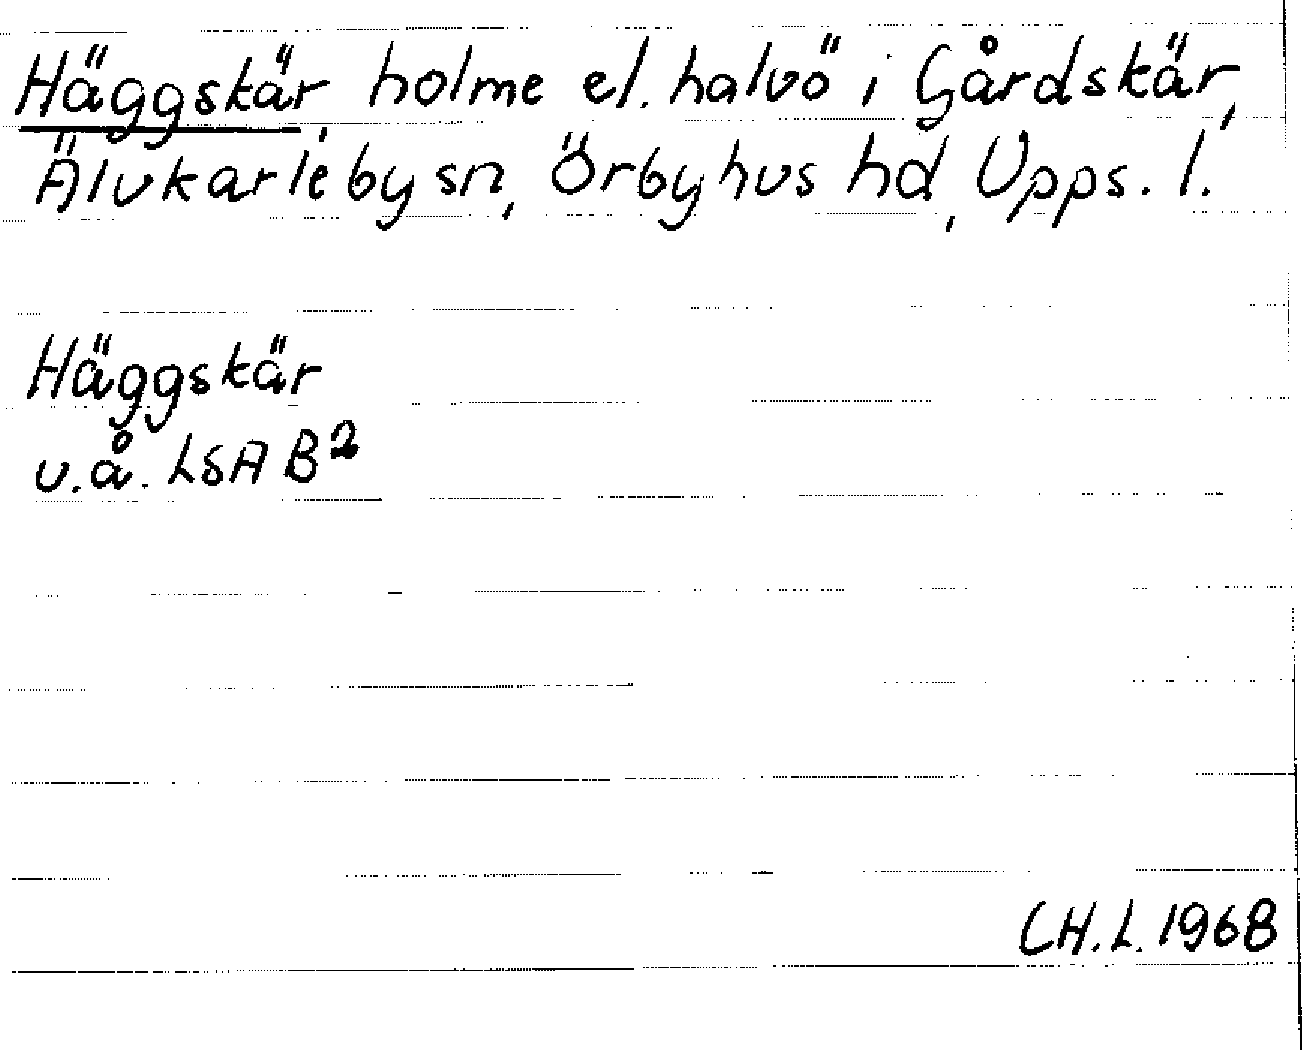 Häggskär, holme el. halvö i Gårdskär,
Älvkarleby sn, Örbyhus hd, Upps. l.
Häggskär
u.å. LSA B²
CH.L. 1968